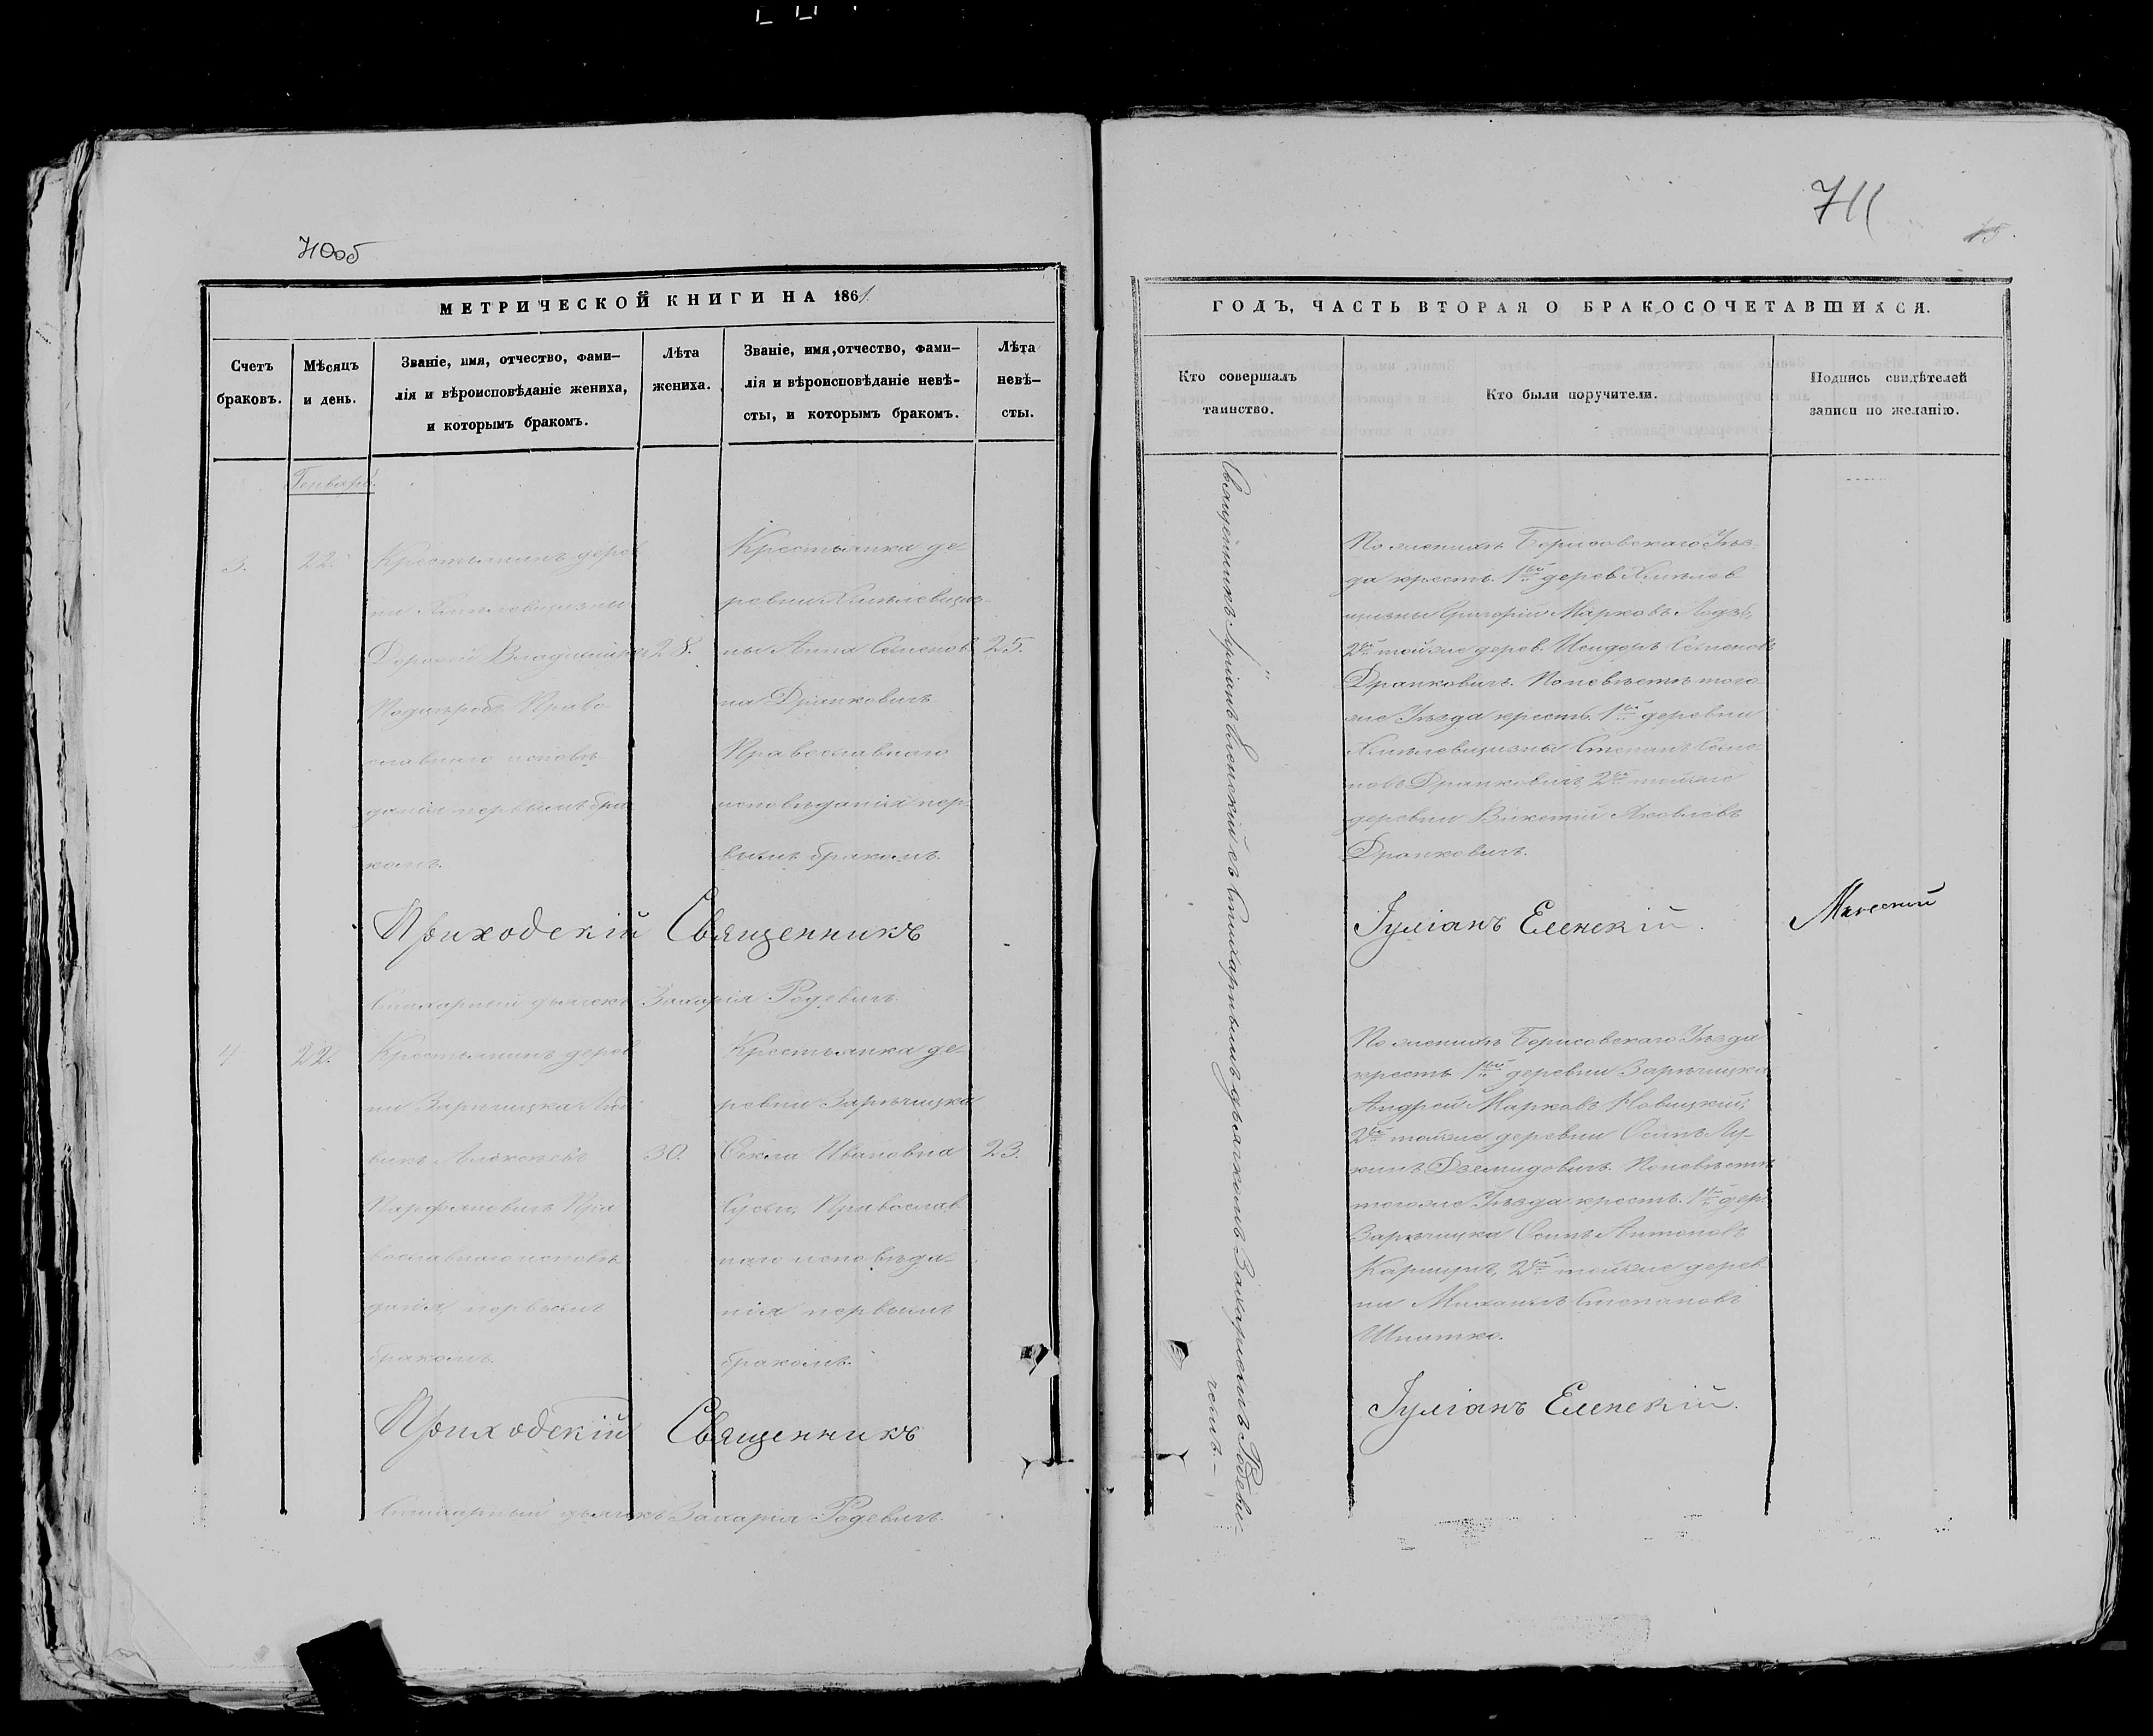 710об
МЕТРИЧЕСКОЙ КНИГИ НА 1861.
Счетъ
браковъ.
Мѣсяцъ
и день.
Званіе, имя, отчество, фами-
лія и вѣроисповѣданіе жениха,
и которымъ бракомъ.
Лѣта
жениха.
Званіе, имя, отчество, фами-
лія и вѣроисповѣданіе невѣ-
сты, и которымъ бракомъ.
Лѣта
невѣ-
сты.
Генварь.
3.
22.
Крестьянинъ дерев
ни Хмѣлевщизны
Дорофей
Право-
славнаго исповѣ-
данія первымъ бра-
комъ.
28.
Крестьянка де-
ревни Хмѣлевщиз-
ны Анна Семенов-
на Драпковичъ
Православнаго
исповѣданія пер-
вымъ бракомъ.
25.
Приходскій Священникъ
Стихарный дьячекъ Захарія Родевичъ.
4
22.
Крестьянинъ дерев
ни Зарѣчицка
Алексѣевъ
Парфяновичъ Пра
вославнаго исповѣ-
данія, первымъ
бракомъ.
30.
Крестьянка де-
ревни Зарѣчицка
Ѳекла Ивановна
Православ-
наго исповѣда-
нія первымъ
бракомъ.
23.
Приходскій Священникъ
Стихарный дьячекъ Захарія Родевичъ.
711
75.
ГОДЪ, ЧАСТЬ ВТОРАЯ О БРАКОСОЧЕТАВШИХСЯ.
Кто совершалъ
таинство.
Кто были поручители.
Подпись свидѣтелей
записи по желанію.
Священникъ Іуліанъ Еленскій съ Стихарнымъ дьячкомъ Захаріемъ Родеви-
чемъ.-
По женихѣ Борисовскаго Уѣз-
да крест. 1ый дерев. Хмѣлев
щизны Григорій Марковъ
2ой тойже дерев. Исидоръ Семеновъ
Драпковичъ. По невѣстѣ того-
же Уѣзда крест. 1ый деревни
Хмѣлевщизны Степанъ Семе-
новъ Драпковичъ, 2ой тойже
деревни Викентій Яковлевъ
Драпковичъ.
Іуліанъ Еленскій.
По женихѣ Борисовскаго Уѣзда
крест. 1ый деревни Зарѣчицка
Андрей Марковъ Новицкій;
2ой тойже деревни Осипъ Лу-
кинъ Дземидовичъ. По невѣстѣ
тогоже Уѣзда крест. 1ый дер.
Зарѣчицка Осипъ Антоновъ
2ой тойже дерев
ни Михаилъ Степановъ
Шпитко.
Іуліанъ Еленскій.